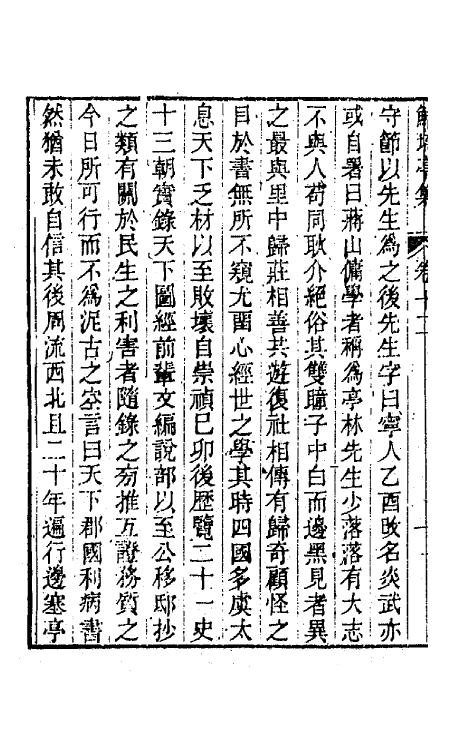 鮚埼亭集 卷十二 一
守節以先生爲之後先生字曰寧人乙酉改名炎武亦
或自署曰蔣山傭學者稱爲亭林先生少落落有大志
不與人苟同耿介絕俗其雙瞳子中白而邊黑見者異
之最與里中歸莊相善共遊復社相傳有歸奇顧怪之
目於書無所不窺尤留心經世之學其時四國多虞太
息天下乏材以至敗壞自崇禎己卯後歷覽二十一史
十三朝實錄天下圖經前輩文編說部以至公移邸抄
之類有關於民生之利害者隨錄之旁推互證務質之
今日所可行而不爲泥古之空言曰天下郡國利病書
然猶未敢自信其後周流西北且二十年遍行邊塞亭